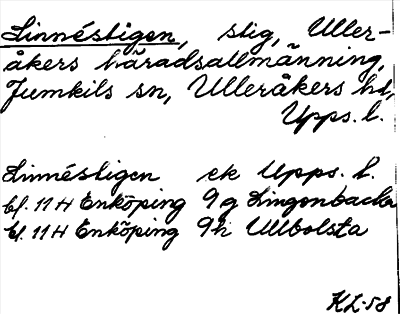 Linnéstigen, stig, Uller-
åkers häradsallmänning,
Jumkils sn, Ulleråkers hd,
Upps. l.
Linnéstigen ek Upps. l.
bl. 11 H Enköping 9 g Lingonbacka
bl. 11 H Enköping 9 h Ullbolsta
KL-58